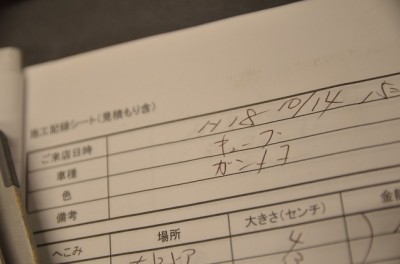 施工記録シート(見積もり含)
ご来店日時 H18 10/14
車種 キューブ
色 ガンメタ
備考
場所 大きさ(センチ) 金額
へこみ 4